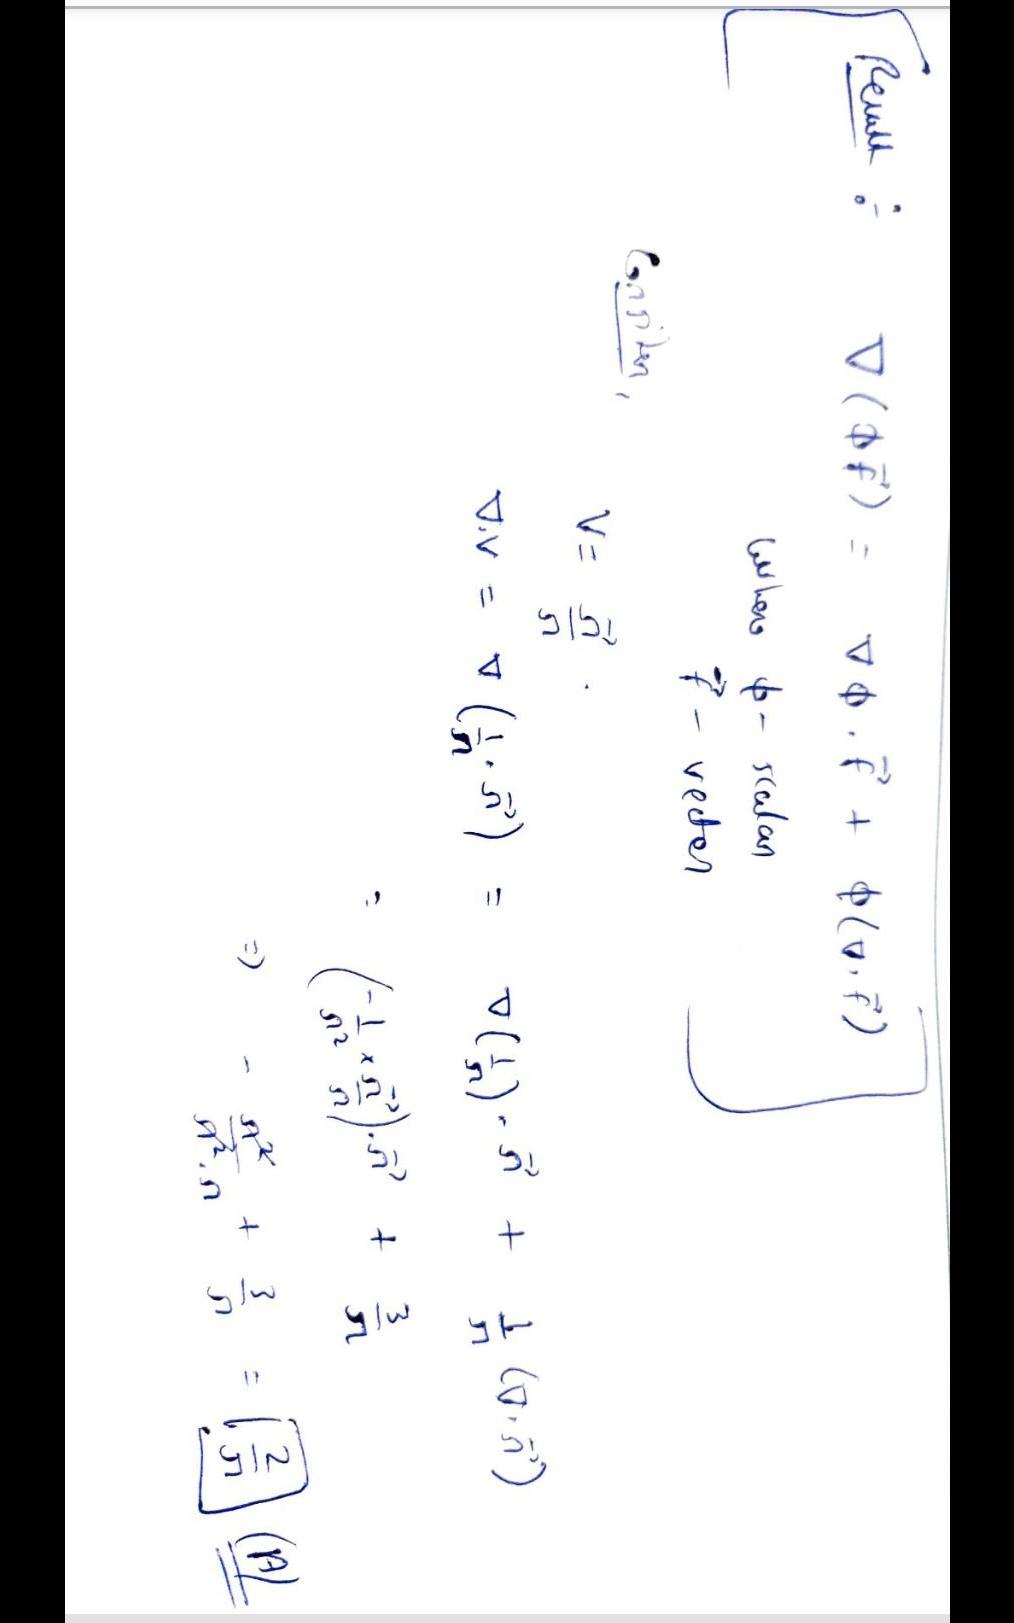 Result :-  ∇(ϕf⃗) = ∇ϕ.f⃗ + ϕ(∇.f⃗)
where ϕ - scalar
f⃗ - vector
Consider,
V = r⃗/r .
∇.V = ∇(1/r . r⃗) = ∇(1/r).r⃗ + 1/r (∇.r⃗)
= (-1/r² × r⃗/r).r⃗ + 3/r
=) - r²/r².r + 3/r = 2/r (A)